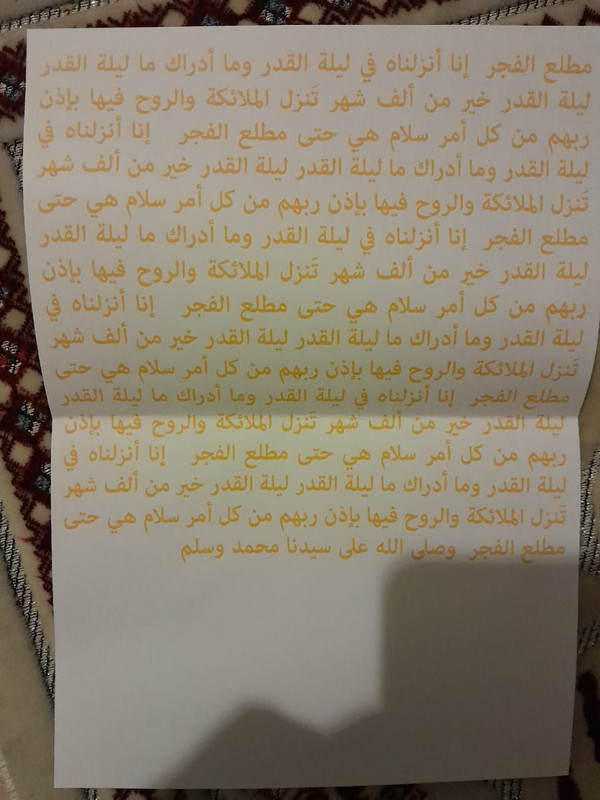 مطلع الفجر إنا أنزلناه في ليلة القدر وما أدراك ما ليلة القدر
ليلة القدر خير من ألف شهر تَنزل الملائكة والروح فيها بإذن
ربهم من كل أمر سلام هي حتى مطلع الفجر إنا أنزلناه في
ليلة القدر وما أدراك ما ليلة القدر ليلة القدر خير من ألف شهر
تَنزل الملائكة والروح فيها بإذن ربهم من كل أمر سلام هي حتى
مطلع الفجر إنا أنزلناه في ليلة القدر وما أدراك ما ليلة القدر
ليلة القدر خير من ألف شهر تَنزل الملائكة والروح فيها بإذن
ربهم من كل أمر سلام هي حتى مطلع الفجر إنا أنزلناه في
ليلة القدر وما أدراك ما ليلة القدر ليلة القدر خير من ألف شهر
تَنزل الملائكة والروح فيها بإذن ربهم من كل أمر سلام هي حتى
مطلع الفجر إنا أنزلناه في ليلة القدر وما أدراك ما ليلة القدر
ليلة القدر خير من ألف شهر تَنزل الملائكة والروح فيها بإذن
ربهم من كل أمر سلام هي حتى مطلع الفجر إنا أنزلناه في
ليلة القدر وما أدراك ما ليلة القدر ليلة القدر خير من ألف شهر
تَنزل الملائكة والروح فيها بإذن ربهم من كل أمر سلام هي حتى
مطلع الفجر وصلى الله على سيدنا محمد وسلم